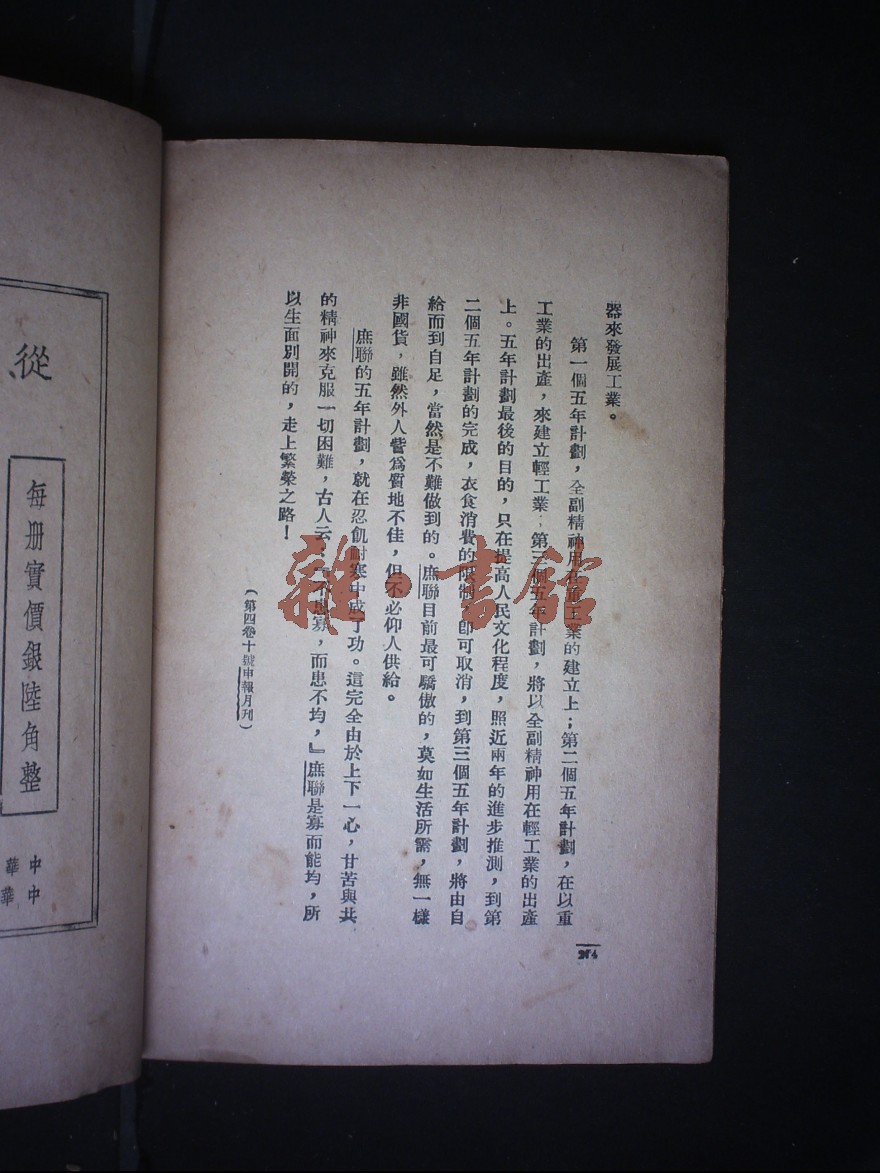 器來發展工業。
第一個五年計劃，全副精神用在重工業的建立上；第二個五年計劃，在以重
工業的出產，來建立輕工業；第三個五年計劃，將以全副精神用在輕工業的出產
上。五年計劃最後的目的，只在提高人民文化程度，照近兩年的進步推測，到第
二個五年計劃的完成，衣食消費的限制，即可取消，到第三個五年計劃，將由自
給而到自足，當然是不難做到的。庶聯目前最可驕傲的，莫如生活所需，無一樣
非國貨，雖然外人訾爲質地不佳，但不必仰人供給。
庶聯的五年計劃，就在忍飢耐寒中成了功。這完全由於上下一心，甘苦與共
的精神來克服一切困難，古人云：『不患寡，而患不均，』庶聯是寡而能均，所
以生面別開的，走上繁榮之路！
（第四卷十號申報月刊）
從
每册實價銀陸角整
中
華
中
華
雜·書館